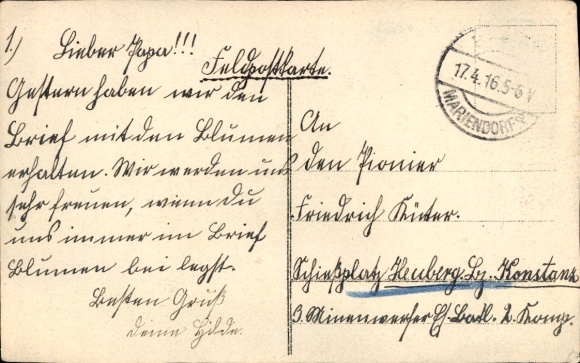 1.) Lieber Papa!!!
Gestern haben wir den
Brief mit den Blumen
erhalten. Wir werden uns
sehr freuen, wenn du
uns immer im Brief
Blumen bei legst.
Besten Gruß
deine Hilde.
Feldpostkarte.
17.4.16.5-6 V
MARIENDORF
An
den Pionier
Friedrich Küter.
Schießplatz Heuberg Bz. Konstanz
3. Minenwerfer Batl. 2. Komp.